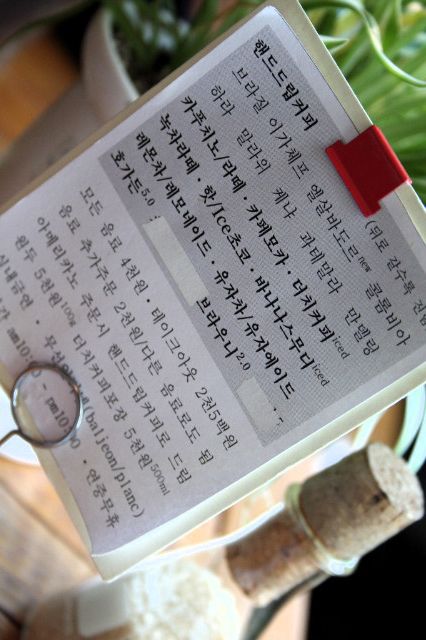 핸드드립커피
브라질 이가체프 엘살바도르new 콜롬비아
하라 말라위 케냐 과테말라 만델링
카푸치노/라떼 · 카페모카 · 더치커피iced
녹차라떼 · 핫/Ice초코 · 바나나스무디iced
레몬차/레모네이드 · 유자차/유자에이드
호가든5.0 브라우니2.0
모든 음료 4천원 · 테이크아웃 2천5백원
음료 추가주문 2천원/다른 음료로도 됨
아메리카노 주문시 핸드드립커피로 드림
원두 5천원100g 더치커피포장 5천원500ml
실내금연 · (baljeon/planc)
pm10 · 연중무휴